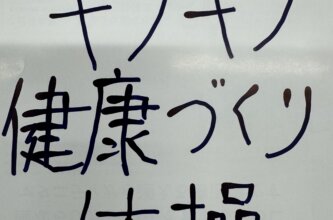 キノキノ
健康づくり
体操